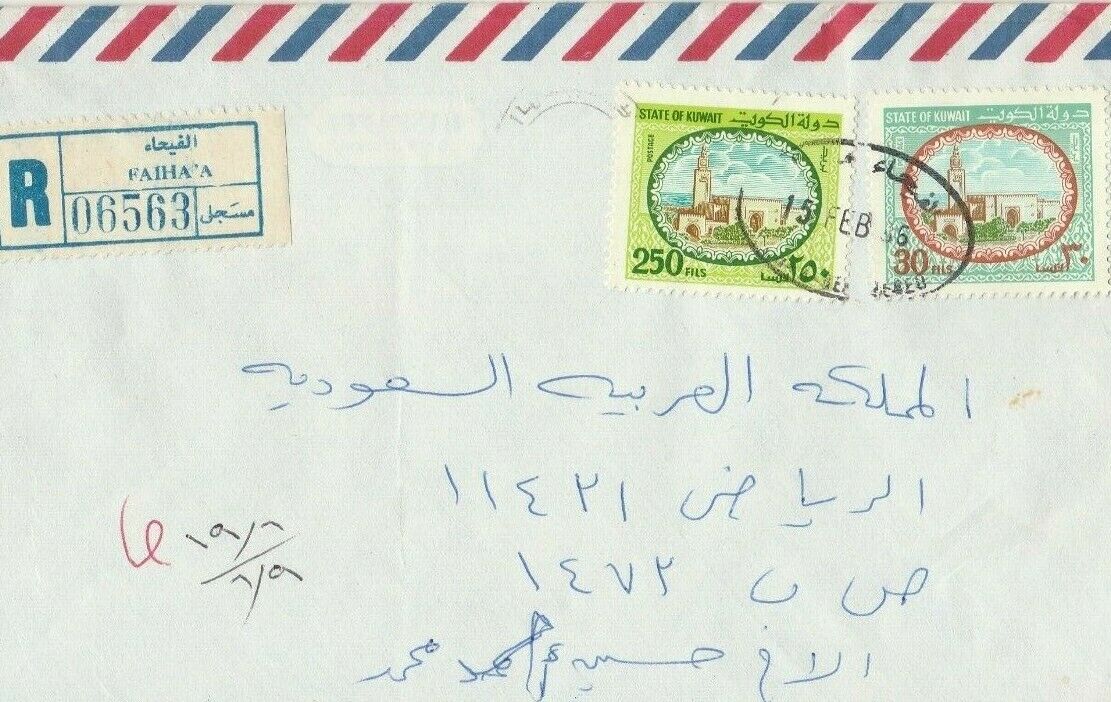 الفيحاء
R FAIHA'A
06563 مسجل
STATE OF KUWAIT دولة الكويت
POSTAGE
250 FILS ٢٥٠ فلسا
STATE OF KUWAIT دولة الكويت
30 FILS ٣٠ فلسا
15 FEB 86
المملكة العربيه السعوديه
الرياض ١١٤٢١
ص ب ١٤٧٢
الاخ حسين محمد